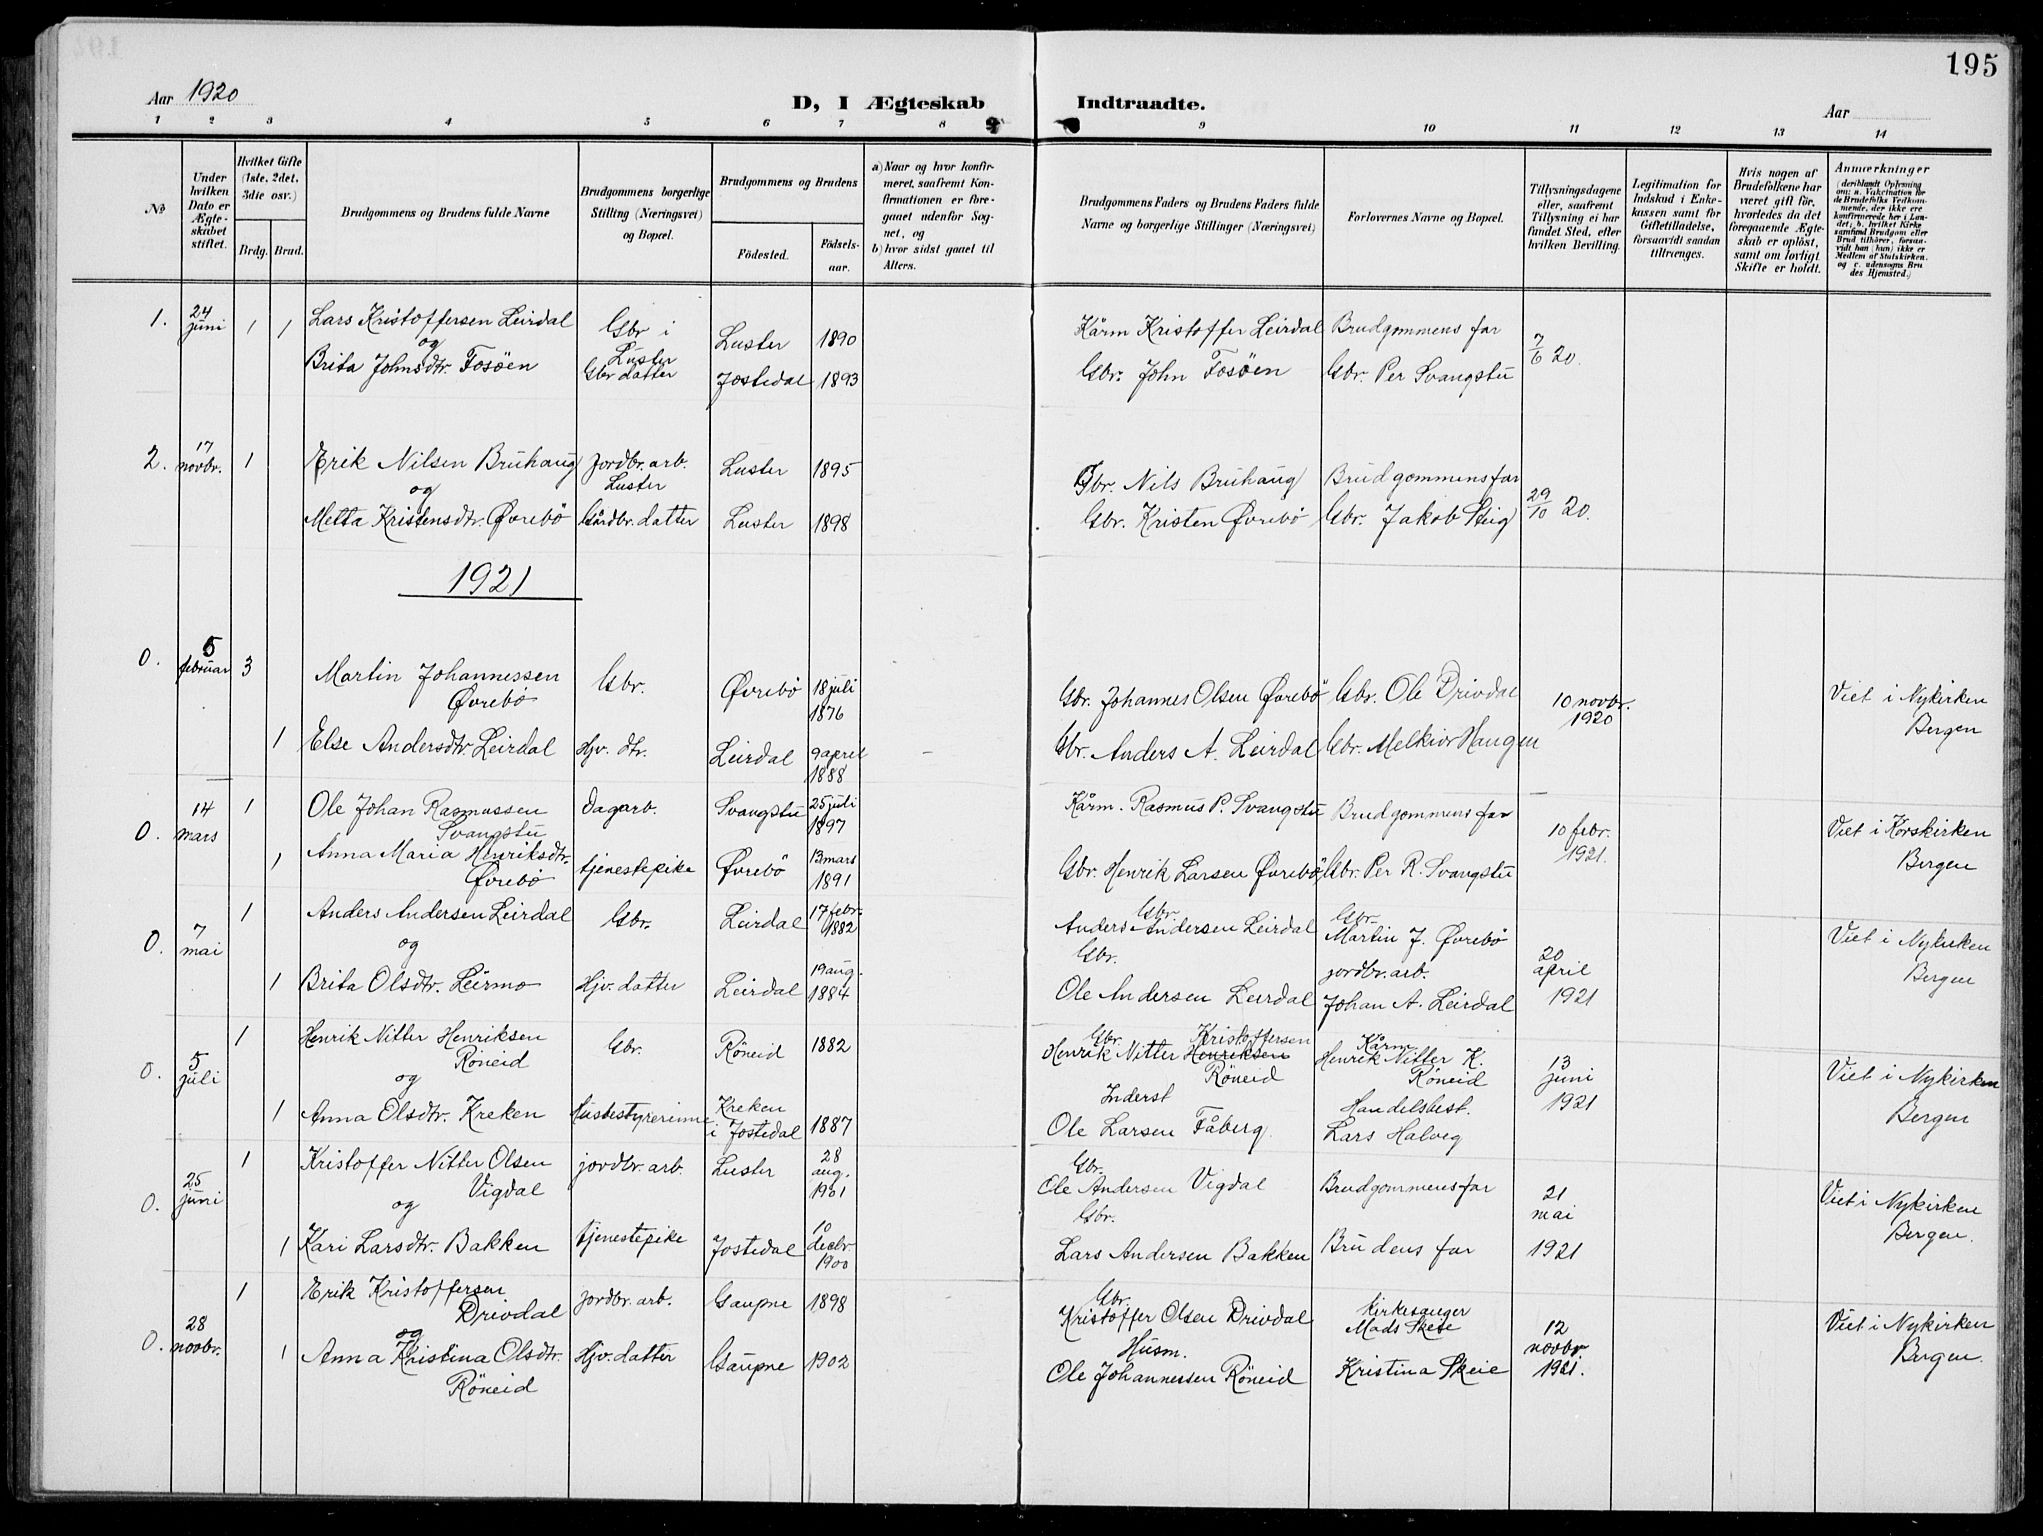 195
Aar 1920
D, I Ægteskab Indtraadte.
Aar
1 2 3 4 5 6 7 8 9 10 11 12 13 14
No
Under hvilken Dato er Ægteskabet stiftet.
Hvilket Gifte (1ste, 2det, 3die osv.)
Brdg. Brud.
Brudgommens og Brudens fulde Navne
Brudgommens borgerlige Stilling (Næringsvei) og Bopæl.
Brudgommens og Brudens
Födested.
Födselsaar.
a) Naar og hvor konfirmeret, saafremt Konfirmationen er foregaaet udenfor Sognet, og
b) hvor sidst gaaet til Alters.
Brudgommens Faders og Brudens Faders fulde Navne og borgerlige Stillinger (Næringsvei)
Forlovernes Navne og Bopæl.
Tillysningsdagene eller, saafremt Tillysning ei har fundet Sted, efter hvilken Bevilling.
Legitimation for Indskud i Enkekassen samt for Giftetilladelse, forsaavidt saadan tiltrænges.
Hvis nogen af Brudefolkene har været gift för, hvorledes da det foregaaende Ægteskab er oplöst, samt om lovligt Skifte er holdt.
Anmerkninger
(deriblandt Oplysning om: a. Vakcination for de Brudefolks Vedkommende, der ikke ere konfirmerede her i Landet; b. hvilket Kirkesamfund Brudgom eller Brud tilhörer, forsaavidt han (hun) ikke er Medlem af Statskirken, og c. udensogns Brudes Hjemsted.)
1. 24 juni 1 1
Lars Kristoffersen Leirdal
og
Brita Johnsdtr. Fosöen
Gbr i Luster
Gbr datter
Luster 1890
Jostedal 1893
Kårm Kristoffer Leirdal
Gbr. John Fosöen
Brudgommens far
Gbr. Per Svangstu
7/6 20.
2. 17 novbr. 1
Erik Nilsen Bruhaug
og
Metta Kristensdtr. Øvrebö
Jordbr. arb. Luster
Gårdbr. datter
Luster 1895
Luster 1898
Gbr. Nils Bruhaug
Gbr. Kristen Øvrebö
Brudgommens far
Gbr. Jakob Steig
29/10 20.
1921
0. 5 februar 3
Martin Johannessen
Øvrebö
Gbr.
Øvrebö 18 juli 1876
Gbr. Johannes Olsen Øvrebö
Gbr. Ole Drivdal
10 novbr. 1920
Viet i Nykirken
Bergen
1 Else Andersdtr. Leirdal
Hjv. dtr.
Leirdal 9 april 1888
Gbr. Anders A. Leirdal
Gbr. Melkior Haugen
0. 14 mars 1
Ole Johan Rasmussen
Svangstu
Dagarb.
Svangstu 25 juli 1897
Kårm. Rasmus P. Svangstu
Brudgommens far
10 febr. 1921.
Viet i Korskirken
Bergen
1 Anna Maria Henriksdtr.
Øvrebö
tjenestepike
Øvrebö 13 mars 1891
Gbr. Henrik Larsen Øvrebö
Gbr. Per R. Svangstu
0. 7 mai 1
Anders Andersen Leirdal
og
Gbr.
Leirdal 17 febr. 1882
Gbr.
Anders Andersen Leirdal
Gbr.
Martin J. Øvrebö
20 april 1921
Viet i Nykirken
Bergen
1 Brita Olsdtr. Leirmo
Hjv. datter
Leirdal 19 aug. 1884
Gbr.
Ole Andersen Leirdal
jordbr. arb.
Johan A. Leirdal
0. 5 juli 1
Henrik Nitter Henriksen
Röneid
og
Gbr.
Röneid 1882
Gbr. Kristoffersen
Henrik Nitter Henriksen
Röneid
Kårm
Henrik Nitter K.
Röneid
13 juni 1921
Viet i Nykirken
Bergen
1 Anna Olsdtr. Kreken
Husbestyrerinne
Kreken i Jostedal 1887
Inderst
Ole Larsen Fåberg.
Handelsbest.
Lars Halveg
0. 25 juni 1
Kristoffer Nitter Olsen
Vigdal
og
jordbr. arb.
Luster 28 aug. 1901
Gbr.
Ole Andersen Vigdal
Brudgommens far
21 mai 1921
Viet i Nykirken
Bergen.
1 Kari Larsdtr. Bakken
tjenestepike
Jostedal 10 decbr 1900
Gbr.
Lars Andersen Bakken
Brudens far
0. 28 novbr. 1
Erik Kristoffersen
Drivdal
og
jordbr. arb.
Gaupne 1898
Gbr.
Kristoffer Olsen Drivdal
Kirkesanger
Mads Skeie
12 novbr 1921.
Viet i Nykirken
Bergen.
1 Anna Kristina Olsdtr.
Röneid
Hjv. datter
Gaupne 1902
Husm.
Ole Johannessen Röneid
Kristina Skeie